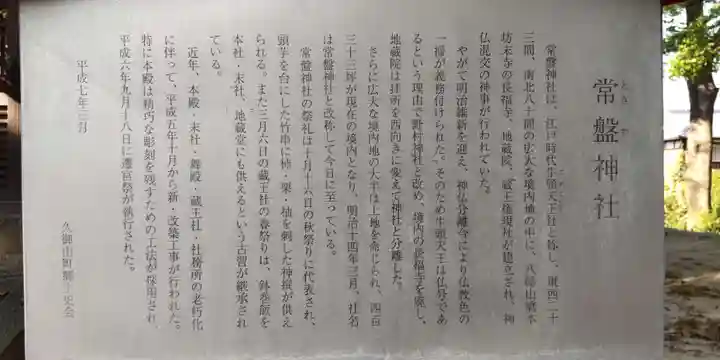 常盤神社
ときわ
常盤神社は、江戸時代牛頭天王社と称し、東西二十
三間、南北八十間の広大な境内地の中に、八幡山橋本
坊末寺の長福寺、地蔵院、蔵王権現社が建立され、神
仏混交の神事が行われていた。
やがて明治維新を迎え、神仏分離令により仏教色の
一掃が義務付けられた。そのため牛頭天王は仏号であ
るという理由で野村神社と改め、境内の長福寺を廃し、
地蔵院は拝所を西向きに変えて神社と分離した。
さらに広大な境内地の大半は上地を命じられ、四百
三十三坪が現在の境内となり、明治十四年三月、社名
は常盤神社と改称して今日に至っている。
常盤神社の祭礼は十月十六日の秋祭りに代表され、
頭芋を台にした竹串に柿・栗・柚を刺した神饌が供え
られる。また三月六日の蔵王社の春祭りは、鉢巻飯を
本社・末社、地蔵堂にも供えるという古習が継承され
ている。
近年、本殿・末社・舞殿・蔵王社・社務所の老朽化
に伴って、平成五年十月から新・改築工事が行われた。
特に本殿は精巧な彫刻を残すための工法が採用され、
平成六年九月十八日に遷宮祭が執行された。
平成七年三月
久御山町郷土史会